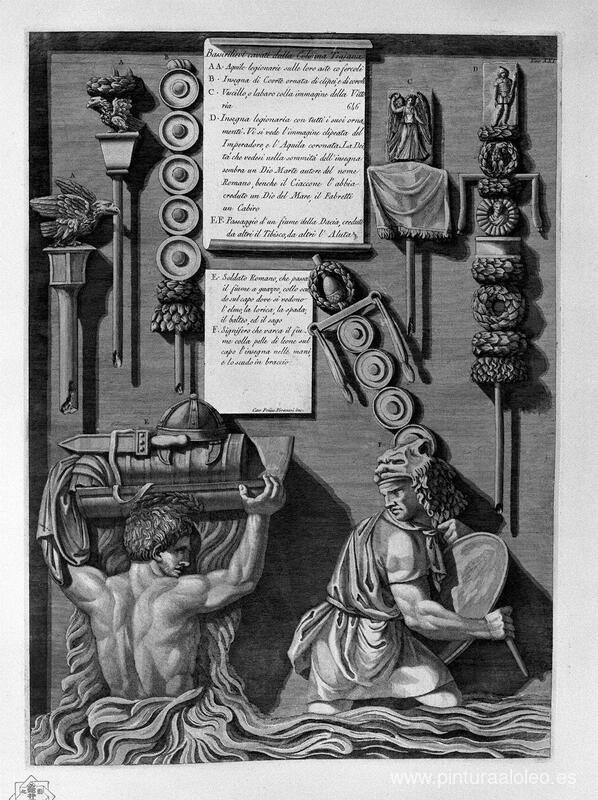 Bassirilievi cavati dalla Colonna Trajana
A A· Aquile legionarie sulle loro aste co fercoli
B · Insegna di Coorte ornata di clipei, e di corone
C · Vassillo, o labaro colla immagine della Vitto
ria 646
D · Insegna legionaria con tutti i suoi orna
menti. Vi si vede l'immagine clipeata del
Imperadore, e l'Aquila coronata. La Dei
tà che vedesi nella sommità dell'insegna
sembra un Dio Marte autore del nome
Romano, benche il Ciaccone l'abbia
creduto un Dio del Mare, il Fabretti
un Cabiro
E,F. Passaggio d'un fiume della Dacia creduto
da altri il Tibisco, da altri l'Aluta
E· Soldato Romano, che passa
il fiume a guazzo, collo scu
do sul capo dove si vedono
l'elmo, la lorica, la spada,
il balteo, ed il sago
F. Signifero che varca il fiu
me colla pelle di leone sul
capo l'insegna nelle mani
e lo scudo in braccio
A
B
C
D
A
E
F
www.pinturaaloleo.es